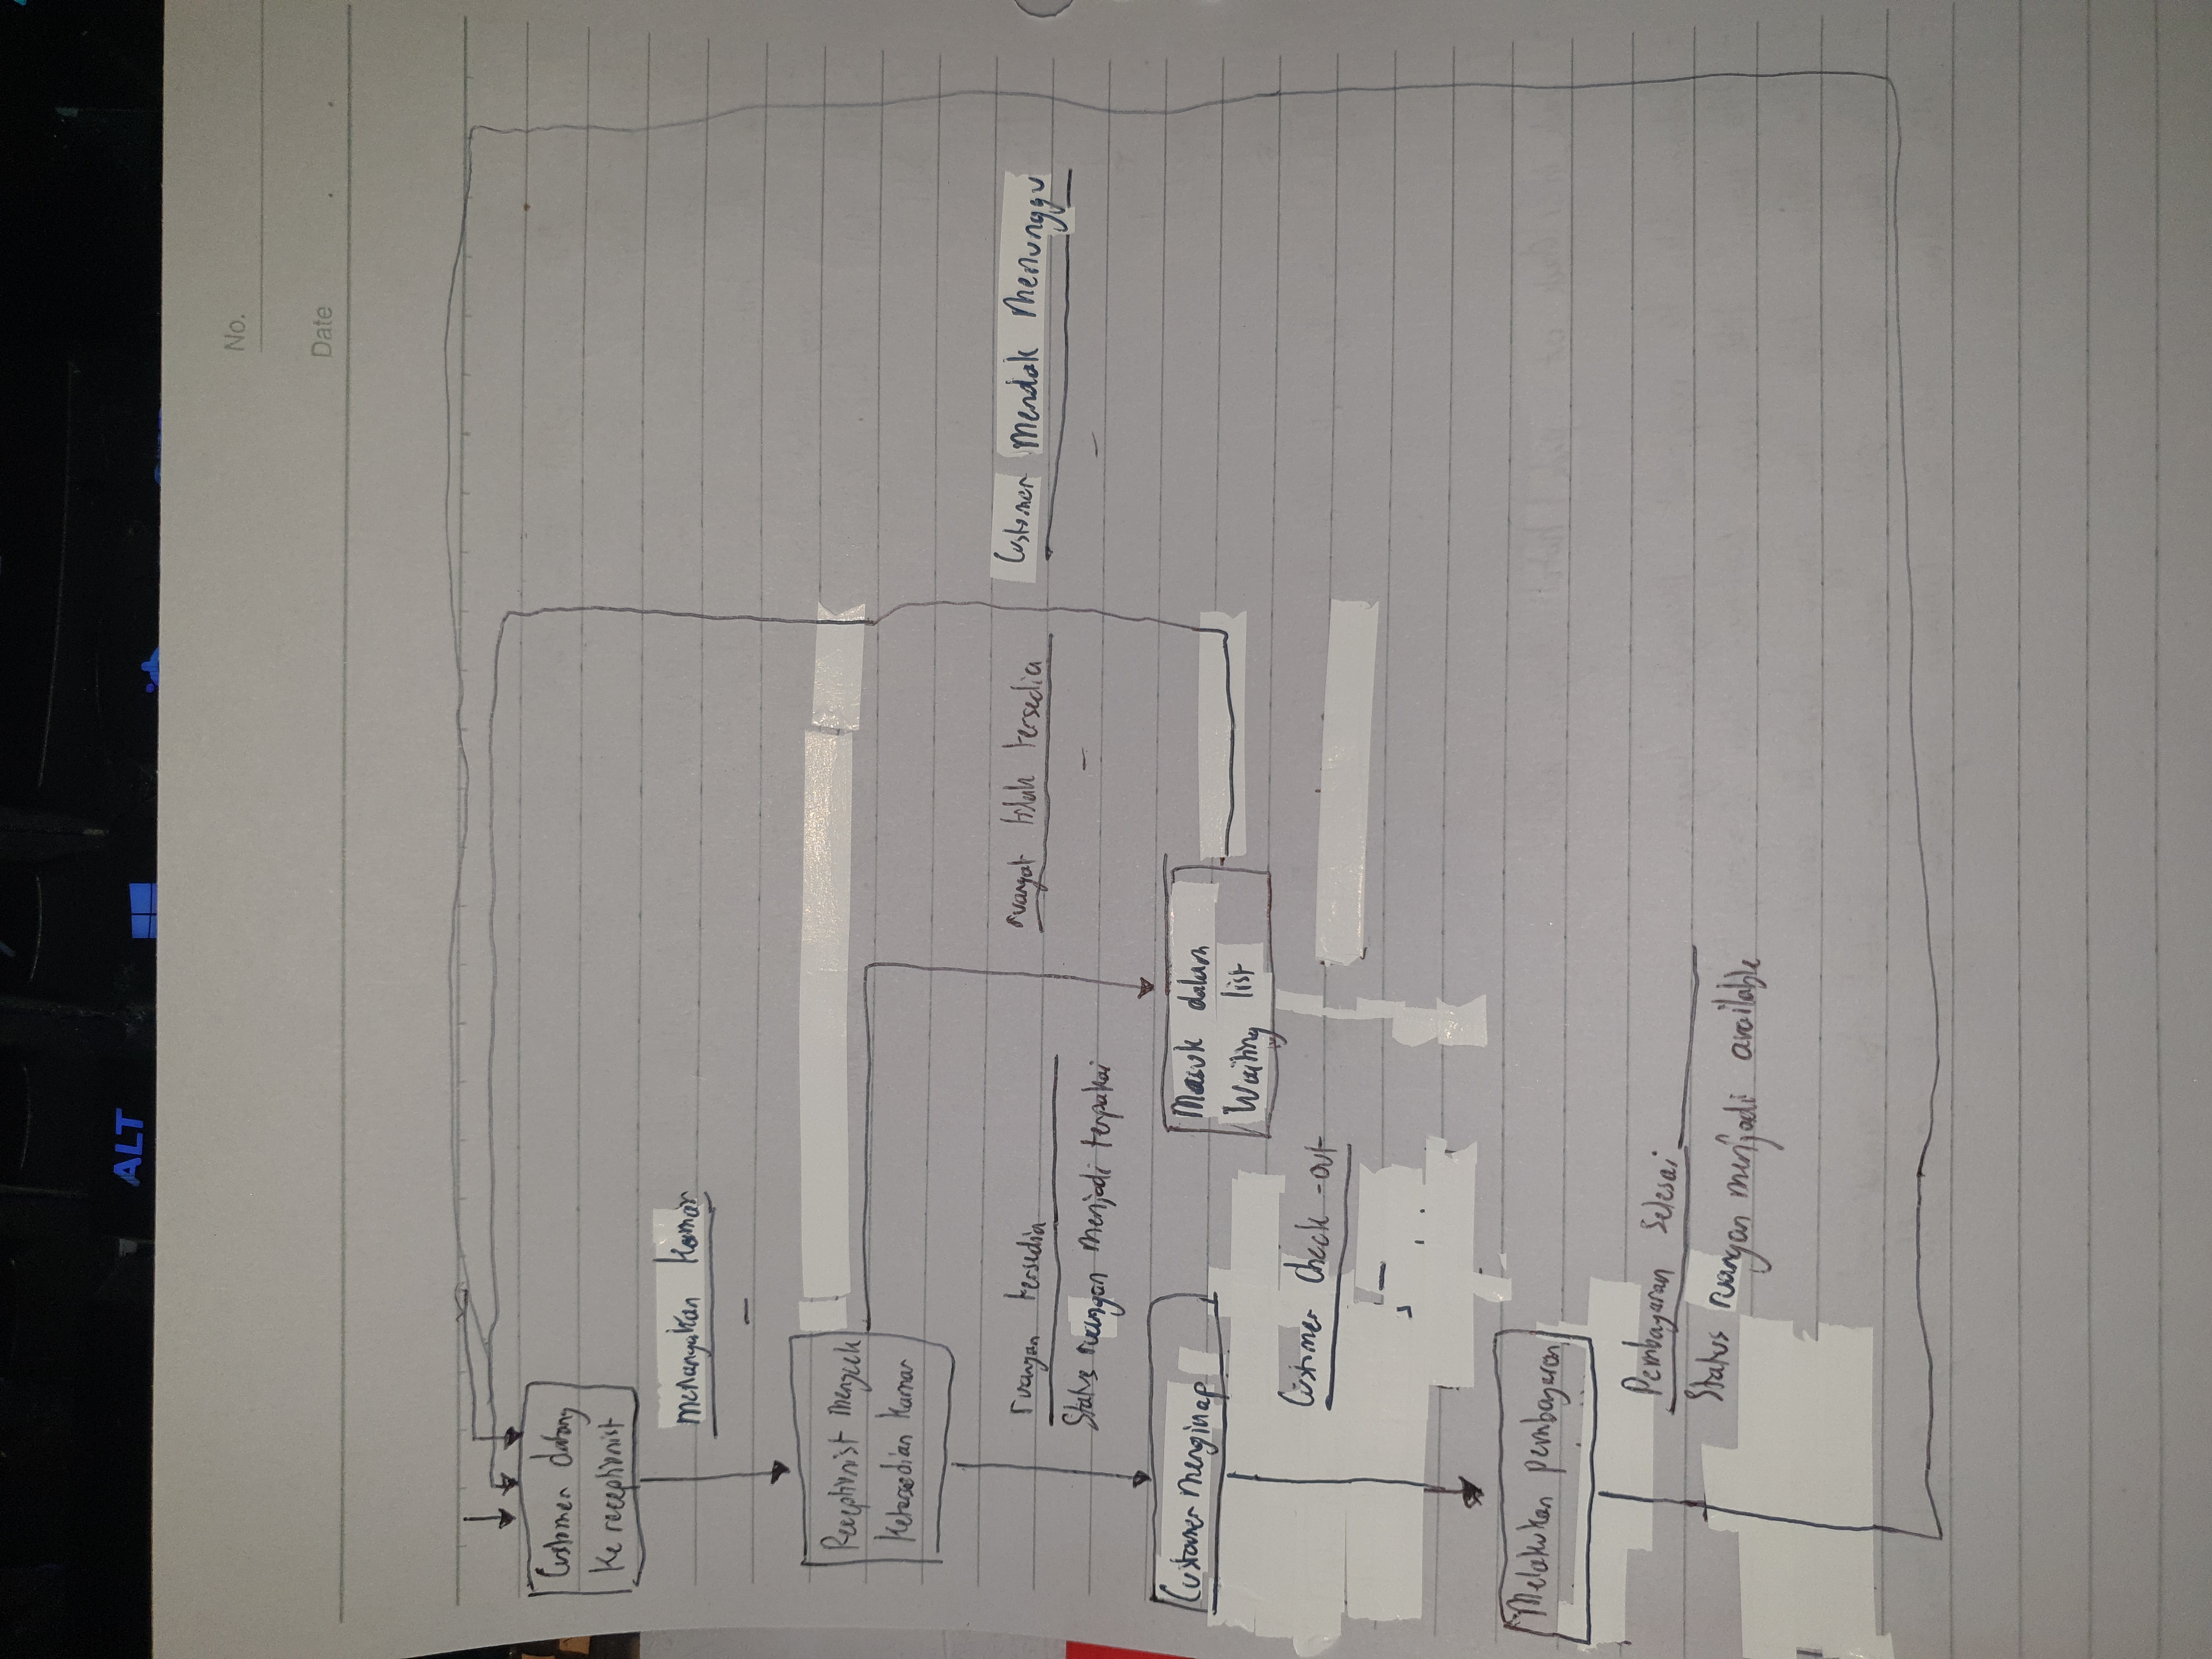 ALT
No.
Date
Customer datang
Ke receptionist
menanyakan kamar
-
Receptionist mengecek
Ketersedian kamar
ruangan tersedia
Status ruangan menjadi terpakai
ruangat tidak tersedia
-
Customer mendak menunggu
-
Customer menginap
Masuk dalam
Waiting list
Customer check-out
-
Melakukan pembayaran
Pembayaran selesai
Status ruangan menjadi available